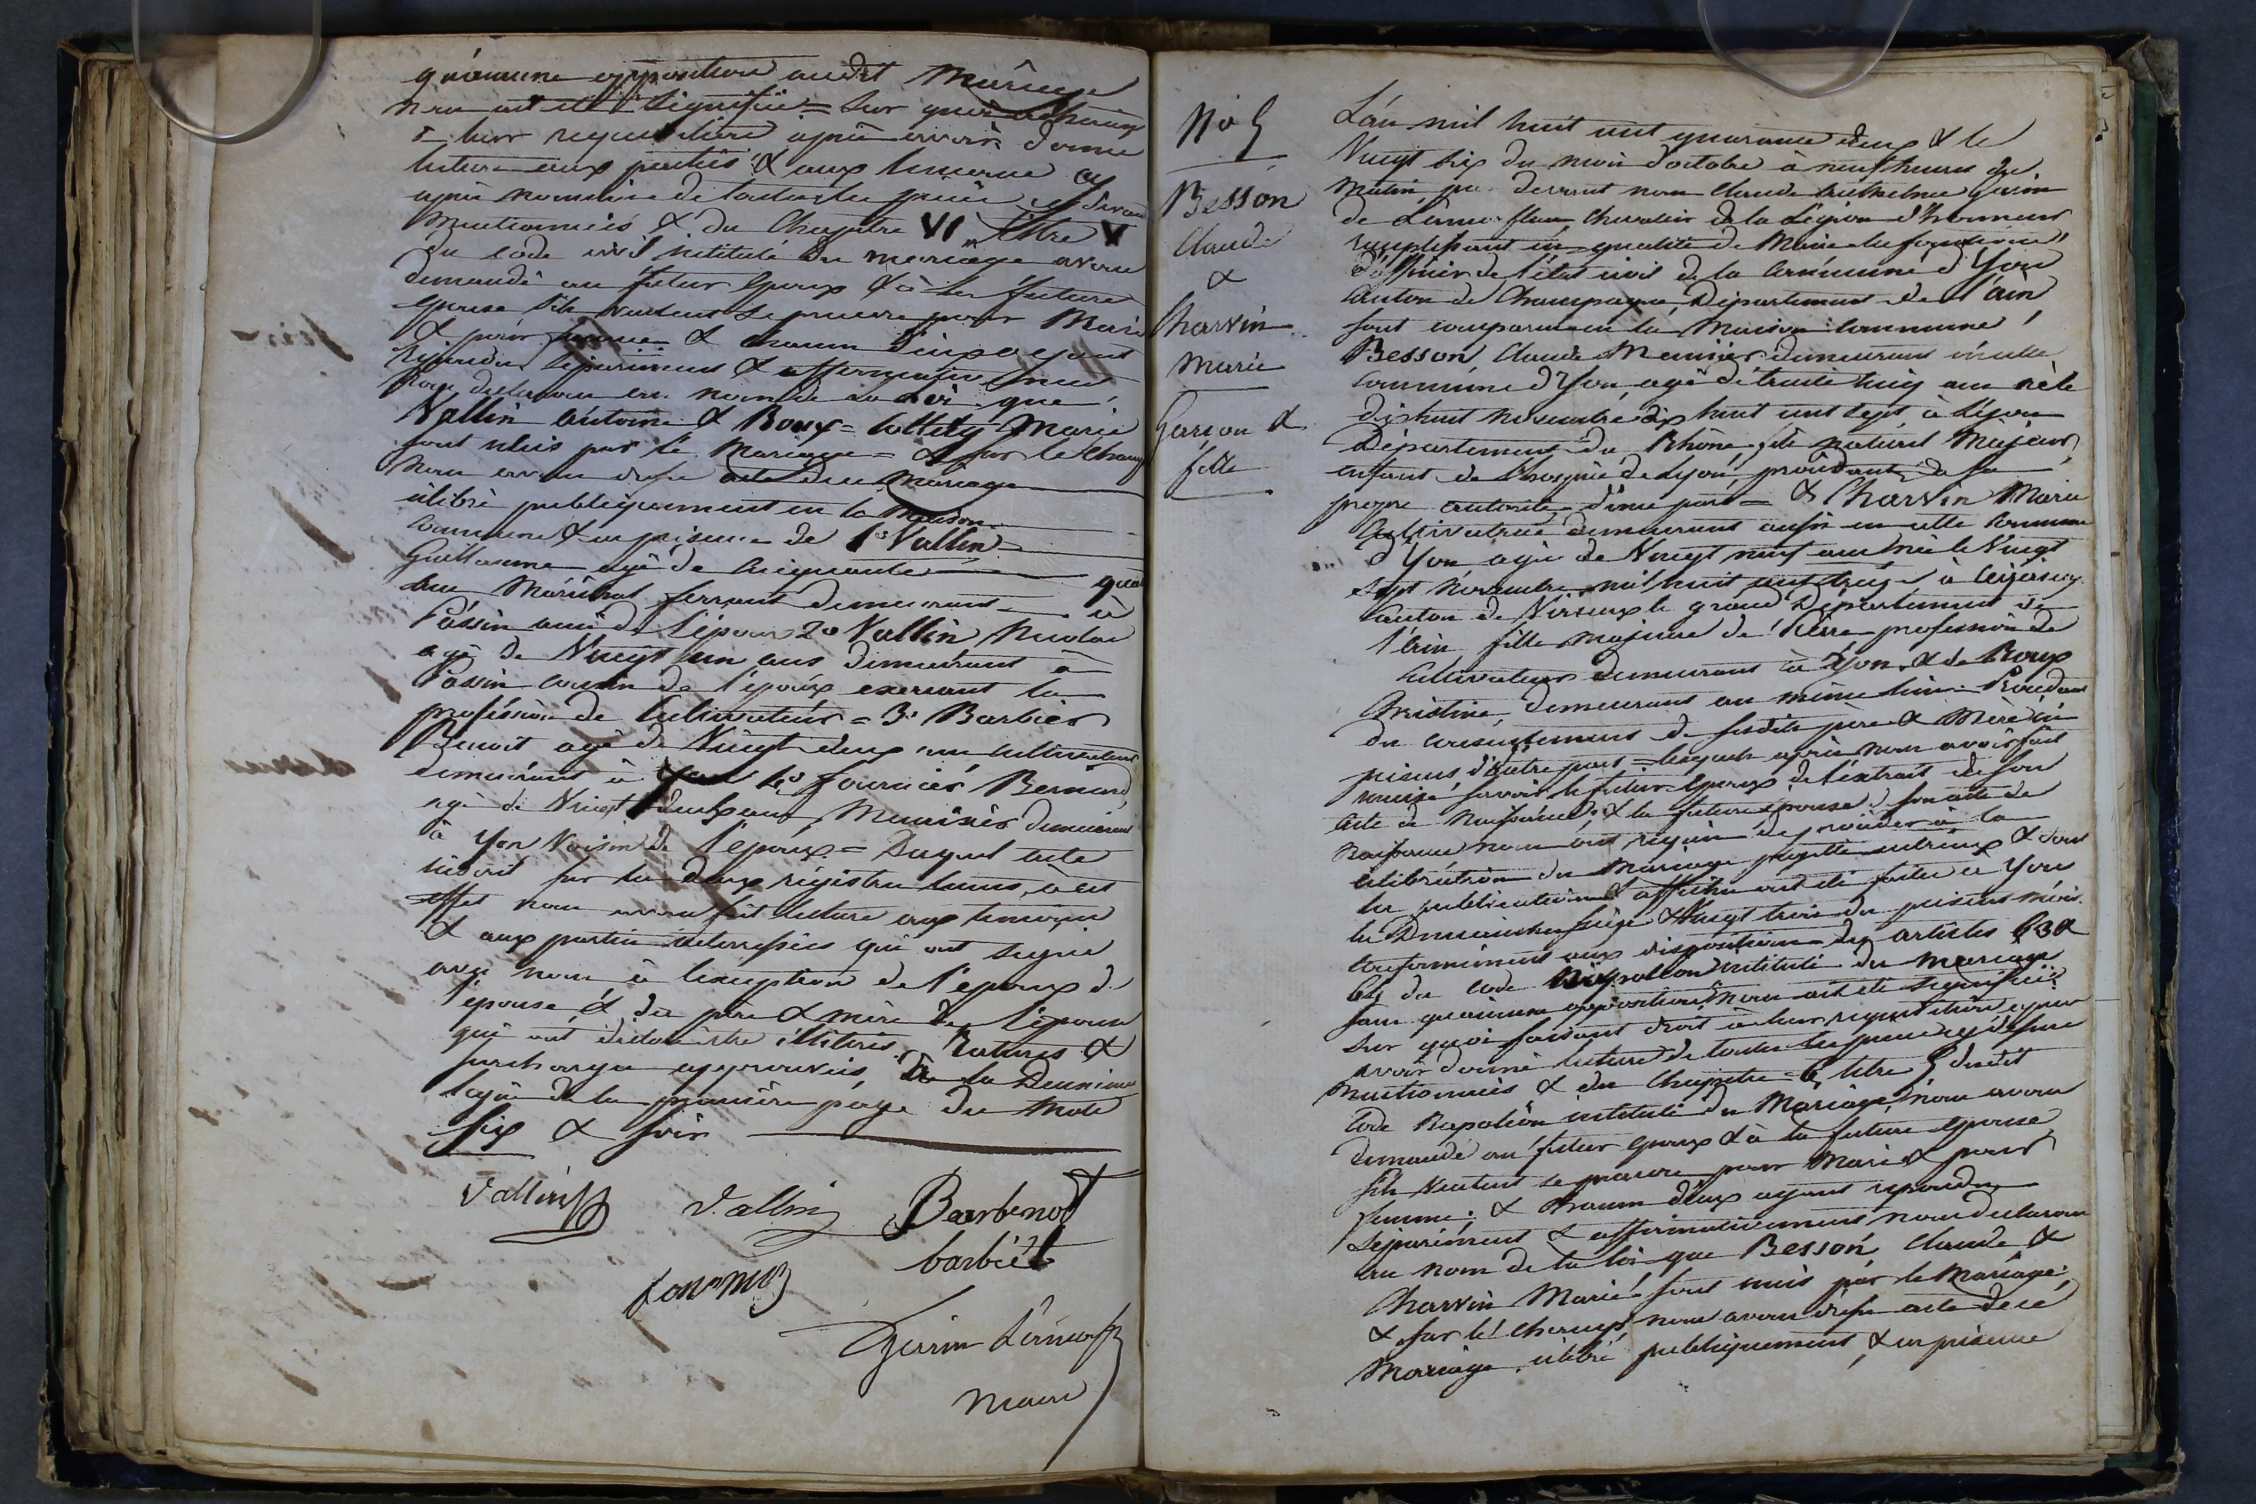 qu'aucune opposition audit Mariage
n'en ait été signifiée = Sur quoi
à leur requisitoire après avoir donné
lecture aux parties & aux temoins
après nommées de toutes les pièces ci devant
Mentionnées & du Chapitre VI titre V
du code civil intitulé du mariage avons
demandé au futur Epoux & à la future
epouse s'ils veulent se prendre pour Mari
& pour femme & chacun d'eux ayant
répondu séparément & affirmativement
nous déclarons au nom de La Loi que
Vallin Antoine & Roux = Marie
sont unis par le Mariage = & sur le champ
nous avons dressé acte du Mariage
célébré publiquement en la Maison
commune & en présence de 1o Vallin
Guillaume agé de cinquante quatre
ans Maréchal ferrant demeurant à
Passin de l'époux 2o Vallin Nicolas
agé de Vingt un ans demeurant à
Passin cousin de l'époux exercant la
proféssion de Cultivateur = 3o Barbier
Benoit agé de Vingt deux ans cultivateur
demeurant à Yon 4o fournier Bernard
agé de Vingt ans Meunier demeurant
à Yon Voisin de l'époux = Duquel acte
inscrit sur les deux régistres tenus à cet
effet nous avons fait lecture aux temoins
& aux parties intérressées qui ont signé
avec nous à l'exception de l'époux de
l'épouse & des père & mère de l'épouse
qui ont déclaré être illitérés. Ratures &
surcharges approuvées, à la Deuxième
ligne de la première page du Mots
six & soir
Vallin
Vallin
Barbenod
fournier
barbier
Guerin Lameruff
Maire
No 5
Besson
Claude
&
Charvin
Marie
Garcon &
fille
L'an mil huit cent quarante deux & le
Vingt six du mois d'octobre à neuf heures du
Matin par devant nous Claude Guérin
de Chevalier de la Légion d'honneur
remplissant en qualité de Maire les fonctions
d'officier de l'état civil de la Commune d'Yon
Canton de Champagne, Département de l'ain
sont comparus en la Maison Commune
Besson Claude Meunier demeurant en cette
Commune d'Yon, agé de trente cinq ans né le
dix huit novembre dix huit cent sept à Lyon
Département du Rhône, fils naturel Majeur
enfant de l'hospice de Lyon, procédant de sa
propre autorité d'une part = & Charvin Marie
Cultivatrice demeurant aussi en cette Commune
d'Yon agée de Vingt neuf ans née le Vingt
sept Novembre mil huit cent treize à
Canton de Virieux le grand Département de
l'ain fille majeure de Pierre profession de
Cultivateur demeurant à Yon & de Roux
Christine, demeurant au même lieu. Procédant
du consentement de sesdits père & Mère ici
présens d'autre part = Lesquels après nous avoir fait
remise savoir le futur Epoux de l'extrait de son
acte de Naissance & la future épouse de son acte de
Naissance nous ont requis de procéder à la
célébration du Mariage projetté entr'eux & dont
les publications & affiches ont été faites à Yon
les Dimanches Seize & Vingt trois du présent mois
conformément aux dispositions des articles 63 &
64 du code Napoléon intitulé du Mariage
sans qu'aucune opposition nous ait été signifiée
Sur quoi faisant droit à leur requisitoire après
avoir donné lecture de toutes les pièces ci dessus
Mentionnées & du Chapitre 6, titre 5 dudit
Code Napoléon intitulé du Mariage nous avons
demandé au futur epoux & à la future epouse
s'ils veulent se prendre pour Mari & pour
femme. & chacun d'eux ayant repondu
Séparément & affirmativement nous déclarons
au nom de la loi que Besson Claude &
Charvin Marie sont unis par le Mariage
& sur le champ nous avons dressé acte de ce
Mariage célébré publiquement, & en présence